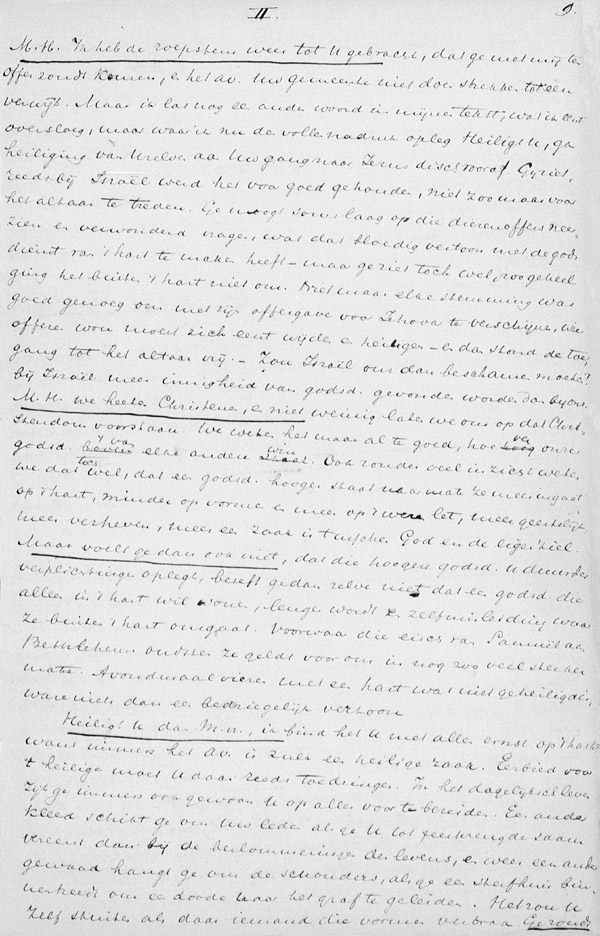 II. 9.
M.H. Ik heb de roepstem weer tot U gebracht, dat ge met mij ten
offer zoudt komen, en het Av. Uw gemeente niet doen strekken tot een
verwijt. Maar ik las nog een ander woord in mijne tekst, wat ik eerst
oversloeg, maar waarik nu de volle nadruk opleg Heiligt U, ga
heiliging van Uzelve aan Uw gang naar Jeruz. disch vooraf. Gij ziet,
reeds bij Israël werd het voor goed gehouden, niet zoo maar voor
het altaar te treden. Ge moogt soms laag op die dierenoffers neer
zien en verwonderd vragen, wat dat bloedig vertoon met de gods
dienst van 't hart te maken heeft – maar ge ziet toch wel, zoo geheel
ging het buiten 't hart niet om. Niet maar elke stemming was
goed genoeg om met zijn offergave voor Jehova te verschijnen, wie
offeren wou moest zich eerst wijden en heiligen – en dan stond de toe
gang tot het altaar vrij. – Zou Israël ons dan beschamen moeten?
bij Israël meer innigheid van godsd. gevonden worden dan bij ons.
M.H. we heeten Christenen, en niet weinig laten we ons op dat Chris-
tendom voorstaan. We weten het maar al te goed, hoe ver onze
godsd. 't van elke anderen wint. Ook zonder veel inzicht weten
we dat toch wel, dat een godsd. hooger staat naar mate ze meer ingaat
op 't hart, minder op vormen en meer op 't wezen let, meer geestelijk
meer verheven, meer een zaak is tusschen God en de eigen ziel.
Maar voelt ge dan ook niet, dat die hoogere godsd. U duurder
verplichtingen oplegt, beseft ge dan zelve niet dat een godsd. die
alleen in 't hart wil wonen, leugen wordt en zelfmisleiding waar
ze buiten 't hart omgaat. Voorwaar die eisch van Samuël aan
Bethlehems oudsten ze geldt voor ons in nog zoo veel sterker
mate. Avondmaal vieren met een hart wat niet geheiligd is,
ware niets dan een bedriegelijk vertoon
Heiligt U dan M.H., ik bind het U met allen ernst op 't hart
want immers het Av. is zulk een heilige zaak. Eerbied voor
't heilige moet U daar reeds toe dringen. In het dagelijksch leven
zijt ge immers ook gewoon U op alles voor te bereiden. Een ander
kleed schikt ge om Uw leden als ge U tot feestvreugde saam
vereent dan bij de bekommeringen des levens, en weer een ander
gewaad hangt ge om de schouders, als ge een sterfhuis bin-
nentreedt om een doode naar het graf te geleiden. Het zou U
zelf stuiten als daar iemand die vormen verbrak